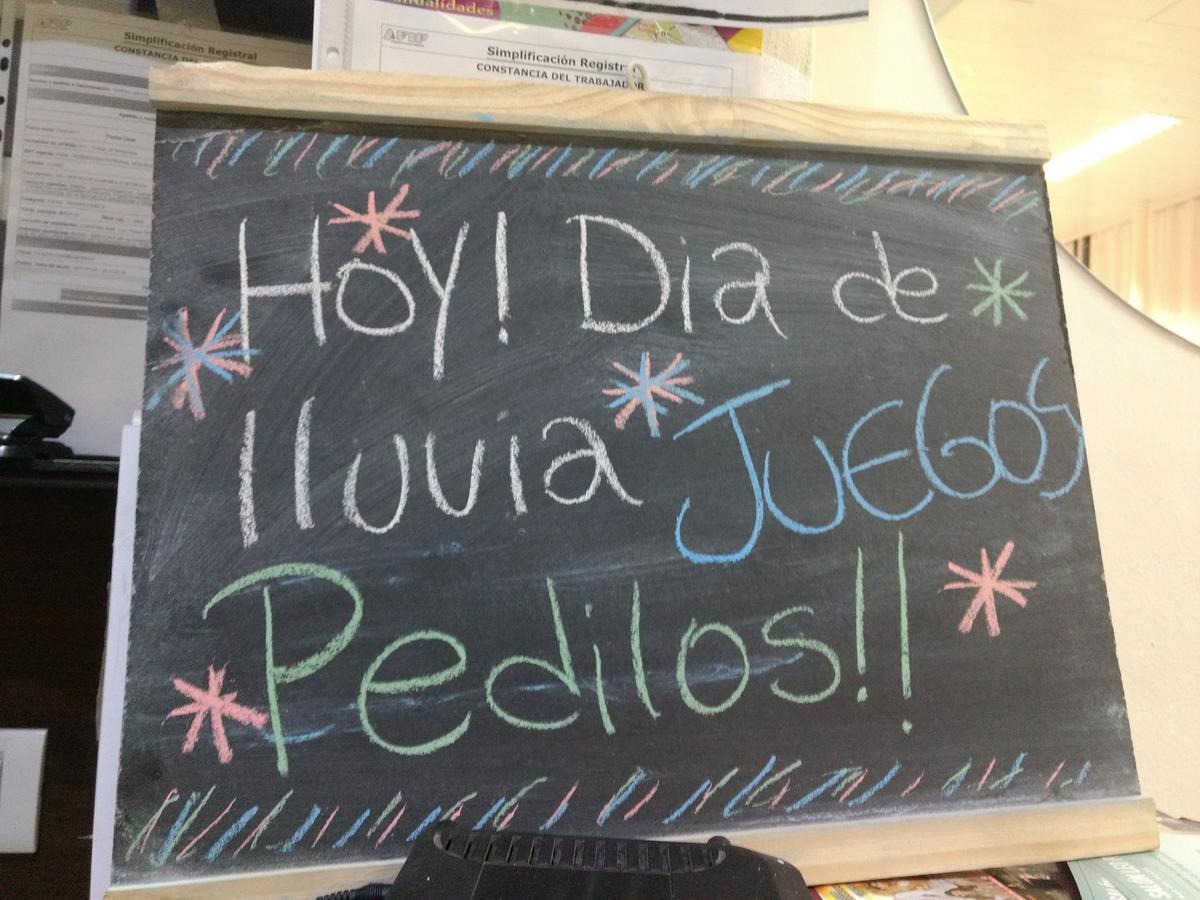 andalidades
AFIP
Simplificación Registral
CONSTANCIA DEL
AFIP
Simplificación Registr
CONSTANCIA DEL TRABAJADOR
Hoy! Dia de
lluvia JUEGOS
Pedilos!!